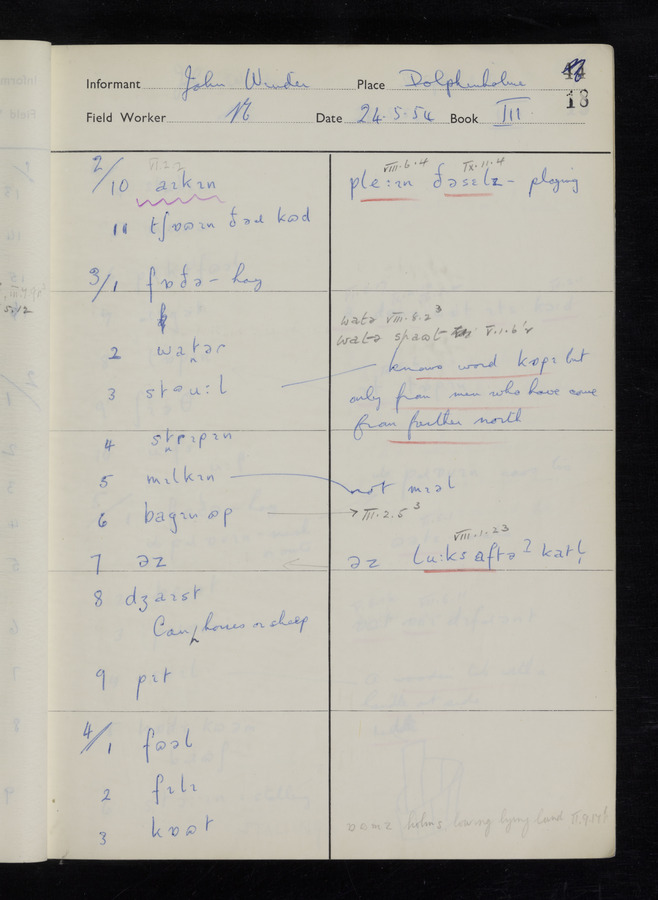 Informant John Winder Place Dolphinholme
18
Field Worker Date 24.5.54 Book III
2/10 aɪkɪn
VI.2.2
11 tʃɒɒɪn ðəɪ kɒd
3/1 fɒðə – hay
2 watər
3 stɒu:l
4 strɪpɪn
5 mɪlkɪn
6 bagɪn ɒp
7 əz
8 dʒaɪst
Cow, horses or sheep
9 pɪt
4/1 fɒəl
2 fɪlɪ
3 kɒɒt
VIII.6.4 IX.11.4
ple:ɪn ðəsɛlz – playing
watə VIII.8.2³
knows word kɒpɪ but
only from men who have come
from further north
not mɪəl
→ III.2.5³
VIII.1.23
əz lu:ks aftə? katl̩
holms, low lying land